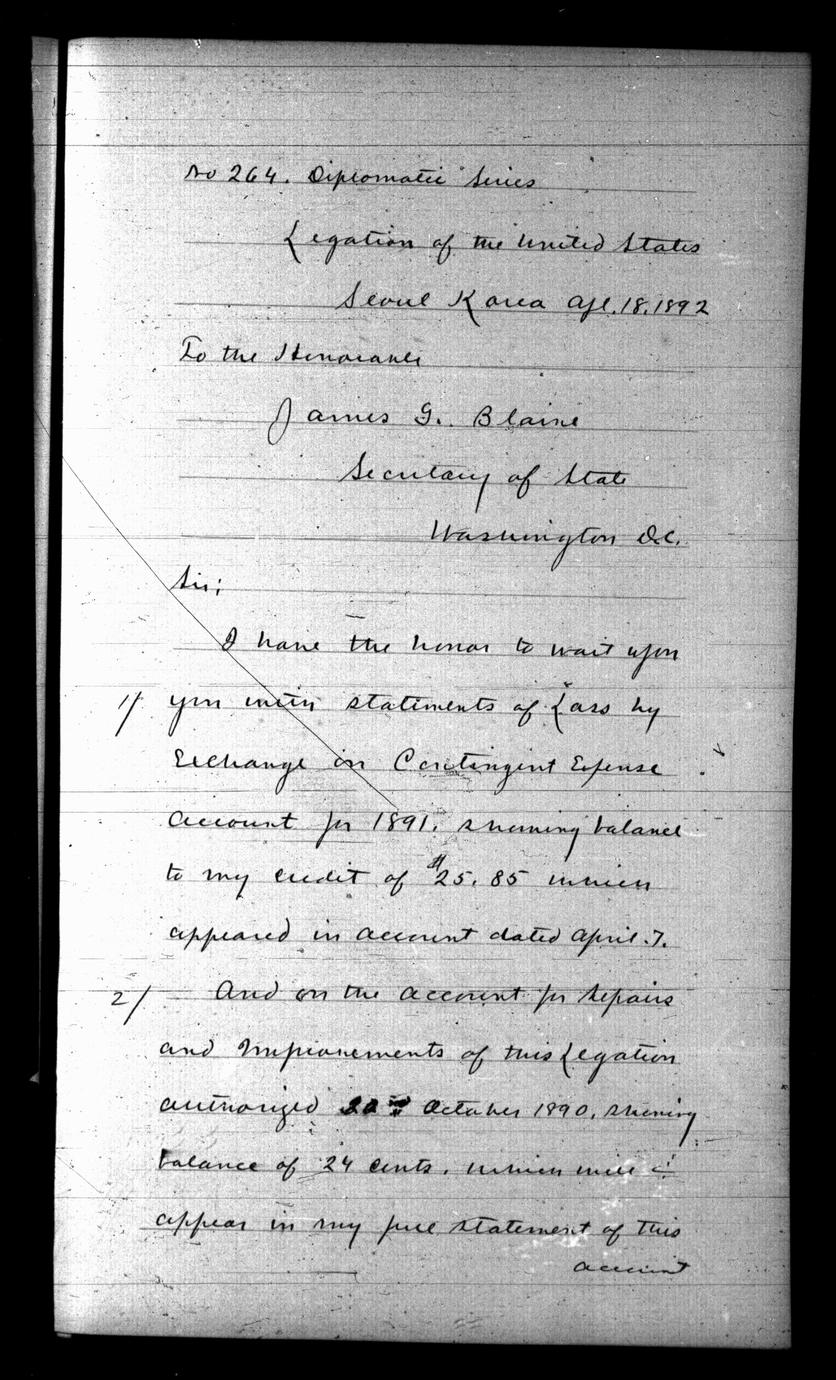 No 264. Diplomatic Series
Legation of the United States
Seoul Korea Apl. 18. 1892
To the Honorable
James G. Blaine
Secretary of State
Washington D.C.
Sir:
I have the honor to wait upon
1/ you with statements of Loss by
Exchange on Contingent Expense
account for 1891. showing balance
to my credit of $25.85 which
appeared in account dated April 7.
2/ And on the account for Repairs
and Improvements of this Legation
authorized October 1890, showing
balance of 24 cents. which will
appear in my full statement of this
account